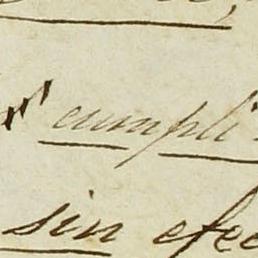 cumpli
sin efec